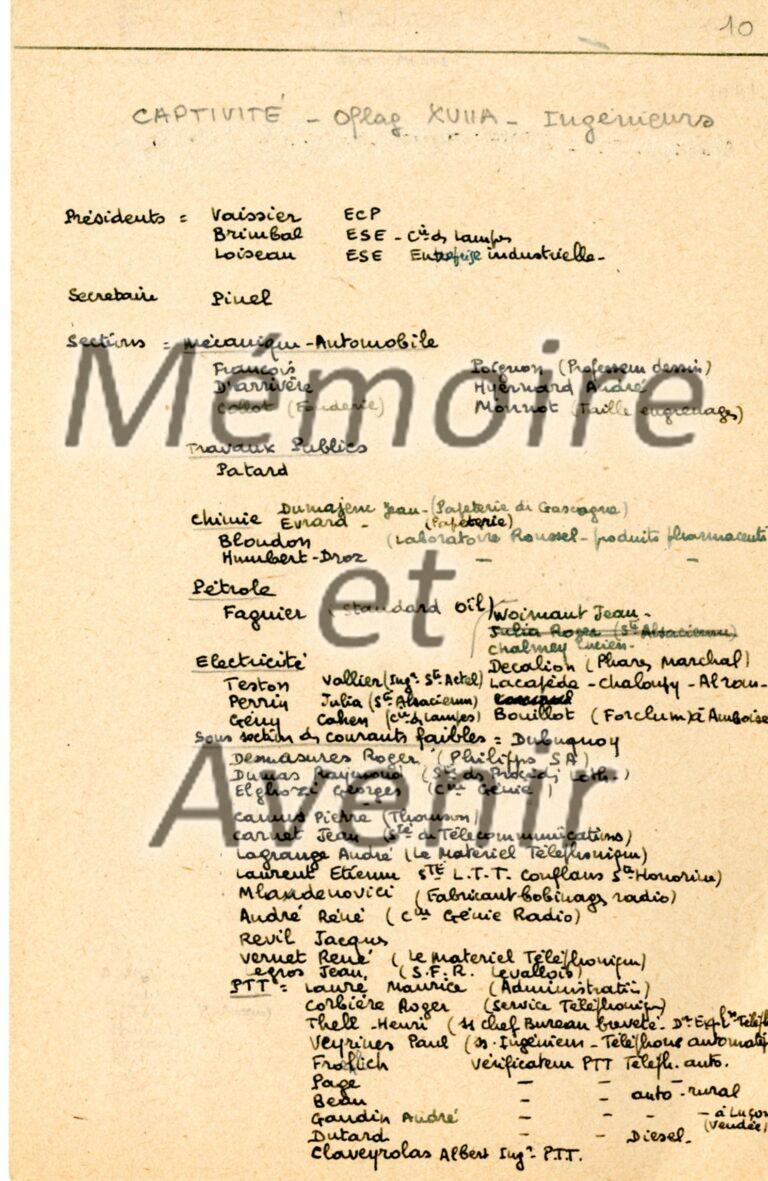 10
CAPTIVITÉ - Oflag XVIIA - Ingénieurs
Présidents = Vaissier ECP
Brimbal ESE - Cie ds Lampes
Loiseau ESE Entreprise industrielle -
Secretaire Pinel
Sections = Mécanique - Automobile
François Poignon (Professeur dessin)
D'arrivère Hyernard André
Collot (Fonderie) Monnot (Taille engrenages)
Travaux Publics
Patard
Chimie Dumajene Jean - (Papeterie de Gascogne)
Evrard - (Papeterie)
Bloudon (Laboratoire Roussel - produits pharmaceuti
Humbert-Droz - -
Pétrole
Fagnier (Standard Oil) Woirnant Jean -
Julia Roger (Sté Alsacienne)
Chalmey Lucien -
Electricité Decalion (Phares Marchal)
Teston Vallier (Ingr Sté Actel) Lacapède - Chaloupy - Alran -
Perrin Julia (Sté Alsacienne)
Gény Cahen (Cie ds Lampes) Bouillot (Forclum) à Amboise
Sous section ds courants faibles = Dubuquoy
Desmasures Roger (Philipps SA)
Dumas Raymond (Sté ds Procédés Loth.)
Elghozi Georges (Cie Génie)
Camus Pierre (Thomson)
Carnet Jean (Sté de Télécommunications)
Lagrange André (Le Materiel Téléphonique)
Laurent Etienne STE L.T.T. Conflans Ste Honorine)
Mladenovici (Fabricant bobinages radio)
André Réné (Cie Génie Radio)
Revil Jacques
Vernet René (Le Materiel Téléphonique)
egros Jean, (S.F.R. Levallois)
PTT = Laure Maurice (Administration)
Corbière Roger (Service Téléphonique)
Thell - Henri (ss chef Bureau breveté - Dn Expl. Téléph
Veyrines Paul (ss. Ingénieur - Téléphone automati
Frohlich Vérificateur PTT Téléph. auto.
Page - - -
Beau - - auto-rural
Gaudin André - - - - à Luçon
(Vendée)
Dutard - - Diesel -
Claveyrolas Albert Ingr P.T.T.
Mémoire
et
Avenir